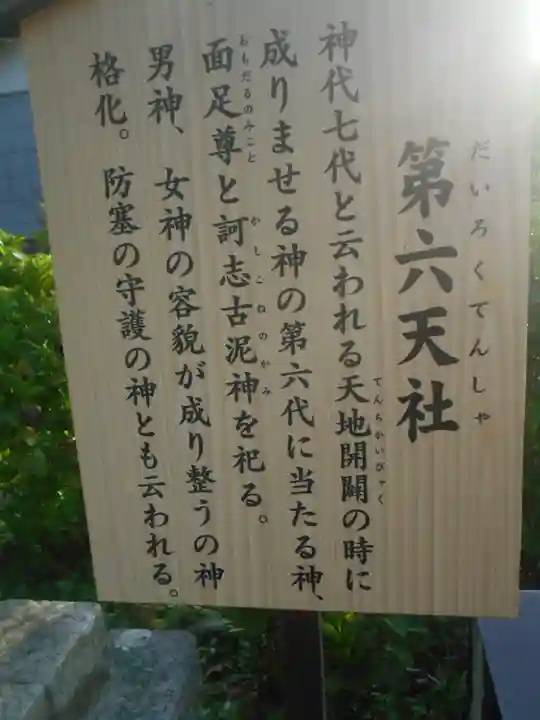 第六天社
だいろくてんしゃ
神代七代と云われる天地開闢の時に
てんちかいびゃく
成りませる神の第六代に当たる神、
面足尊と訶志古泥神を祀る。
おもだるのみこと
かしこねのかみ
男神、女神の容貌が成り整うの神
格化。防塞の守護の神とも云われる。